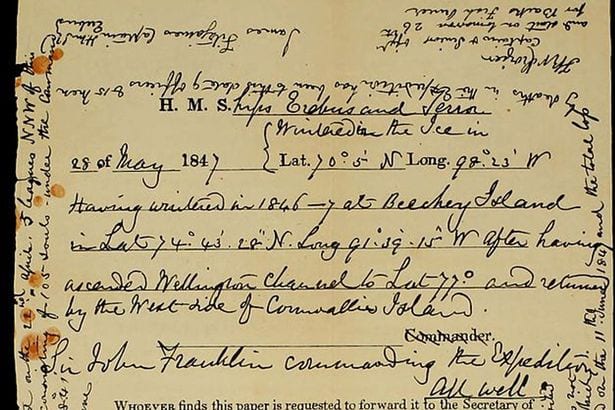 H. M. Ships Erebus and Terror
Wintered in the Ice in
28 of May 1847 Lat. 70°.5' N Long. 98°.23' W
Having wintered in 1846–7 at Beechey Island
in Lat 74°.43'.28" N. Long 91°.39'.15" W After having
ascended Wellington Channel to Lat 77° and returned
by the West side of Cornwallis Island.
Commander.
Sir John Franklin commanding the Expedition
All well
WHOEVER finds this paper is requested to forward it to the Secretary of
by deaths in the Expedition has been to this date 9 officers & 15 men
James Fitzjames Captain HMS
Erebus
Captain & Senior Offr
and start on tomorrow 26th
for Backs Fish River
22nd April 5 leagues NNW of this
of 105 souls under the command
and the total loss
on the 11th June 1847